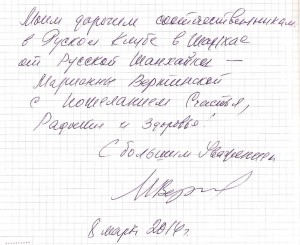 Моим дорогим соотечественникам
в Русском Клубе в Шанхае
от Русской Шанхайки —
Марианны Вертинской
с пожеланием Счастья,
Радости и Здоровья!
С большим Уважением
МВерт
8 март 2014г.